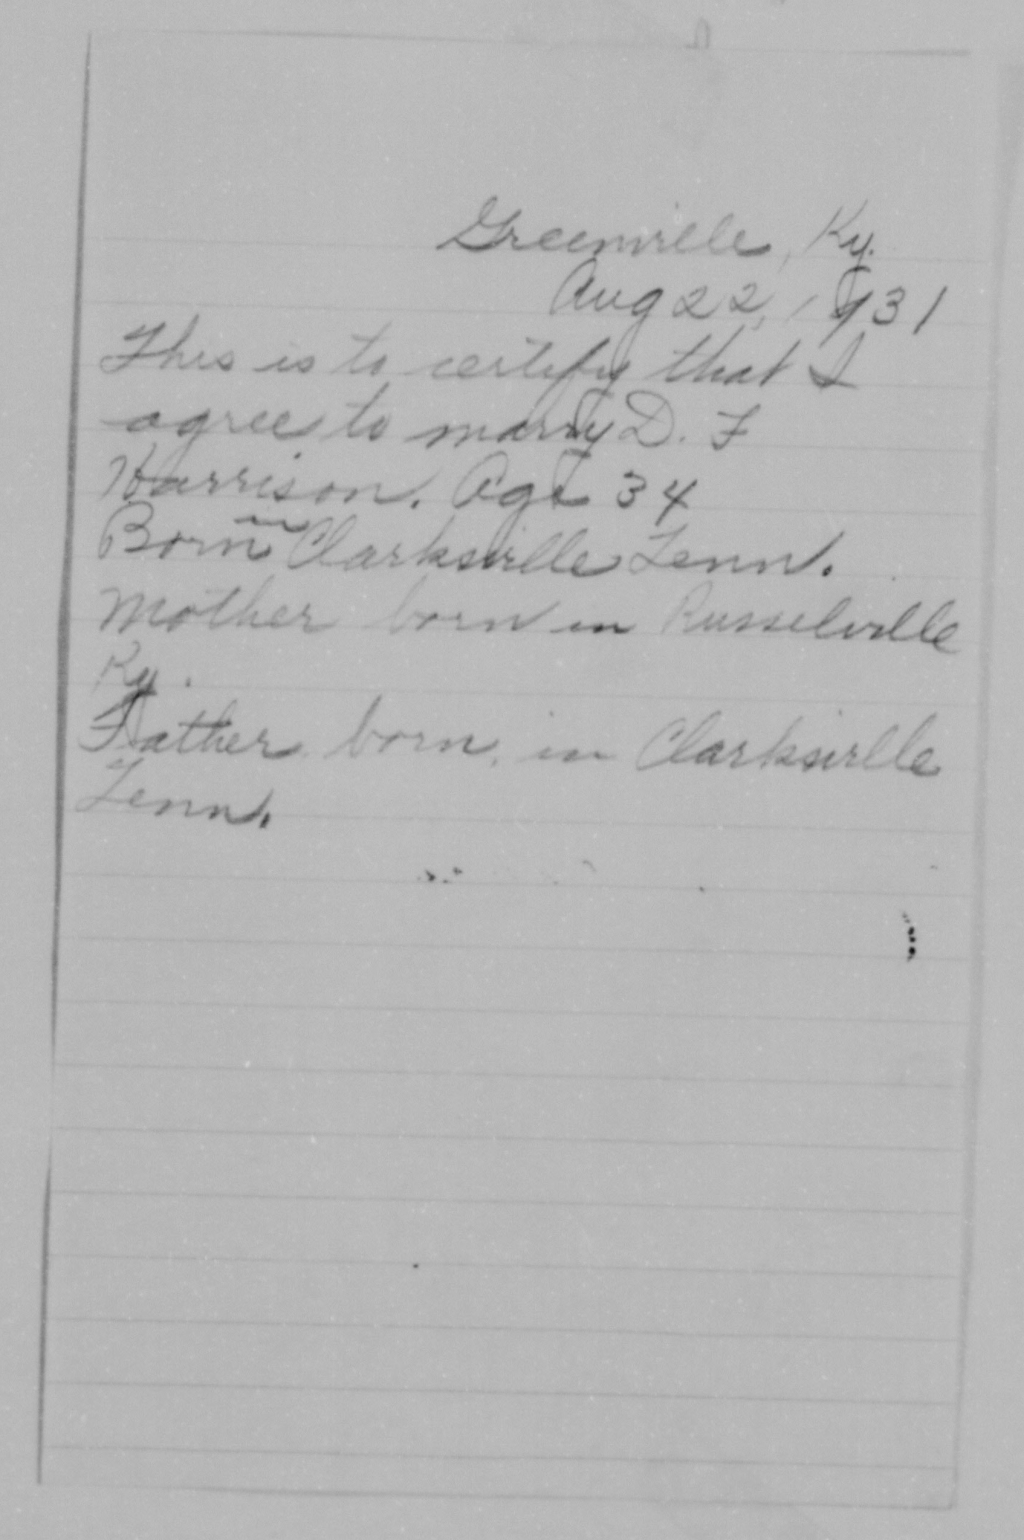 Greenville, Ky.
Aug 22, 1931
This is to certify that I
agree to marry D. F
Harrison. Age 34
Born in Clarksville Tenn.
Mother born in Russelville
Ky.
Father born in Clarksville
Tenn.